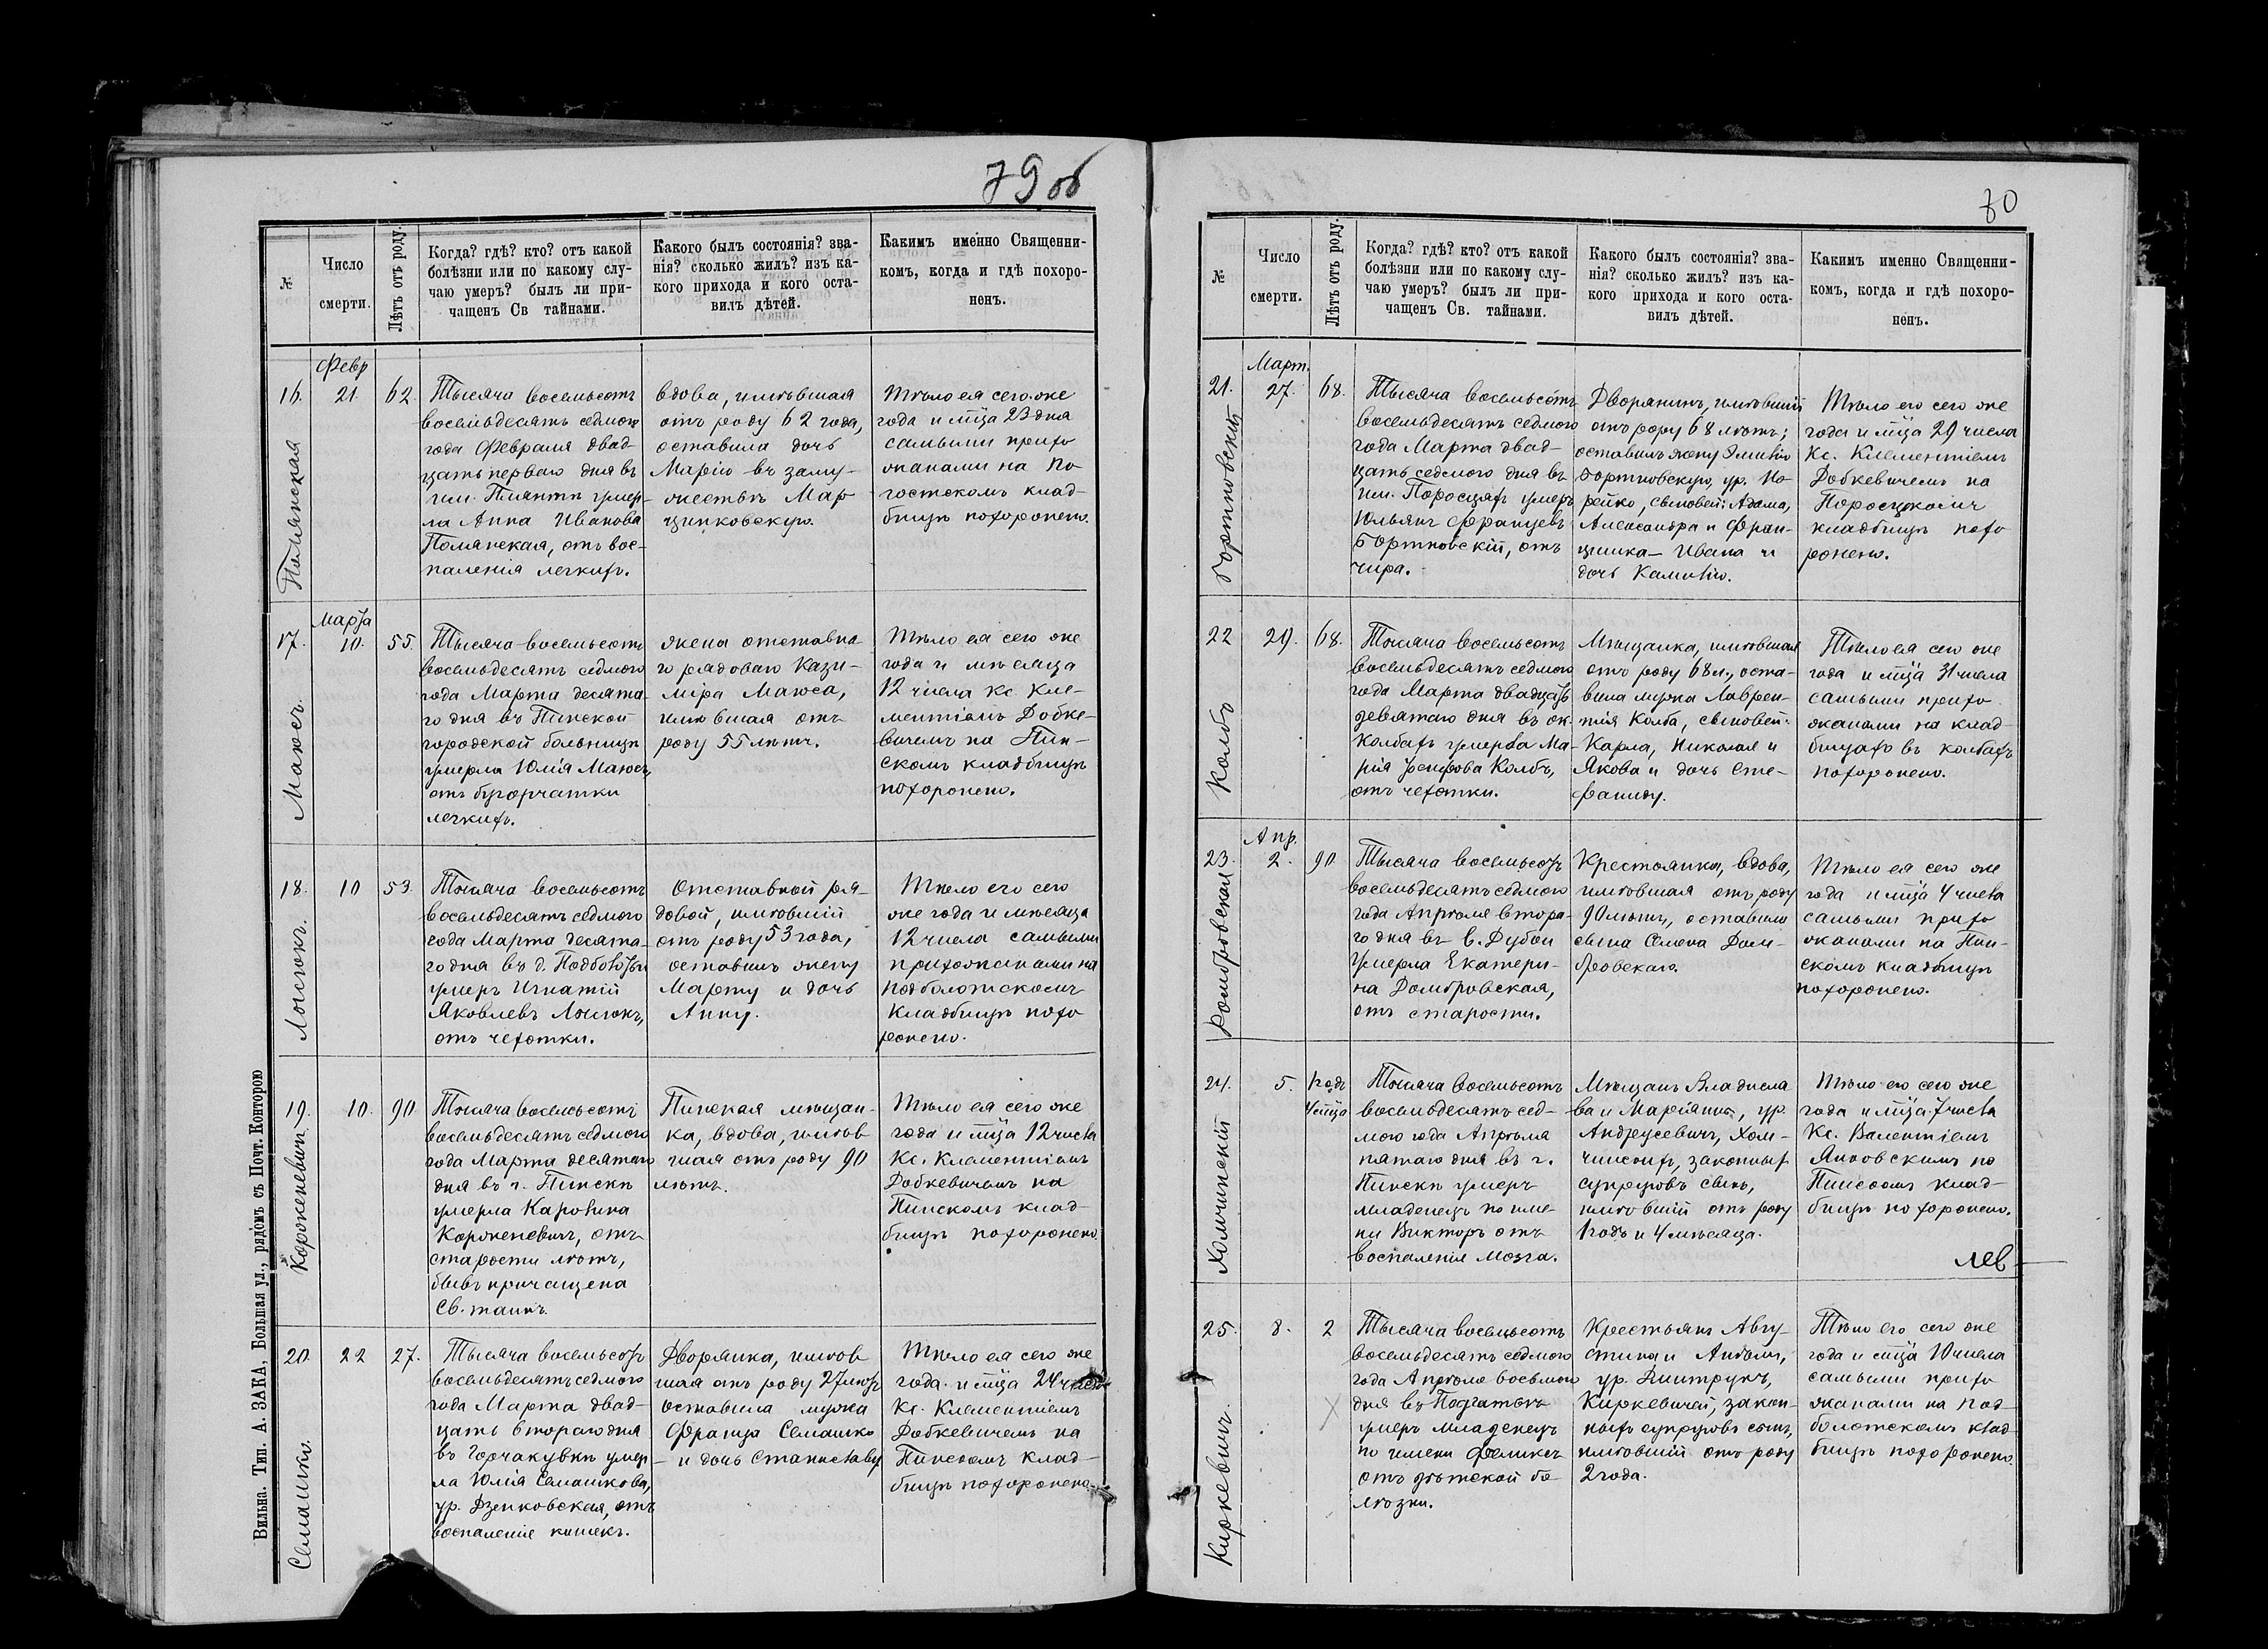 79 об
№
Число
смерти.
Лѣтъ отъ роду.
Когда? гдѣ? кто? отъ какой
болѣзни или по какому слу-
чаю умеръ? былъ ли при-
чащенъ Св тайнами.
Какого былъ состоянія? зва-
нія? сколько жилъ? изъ ка-
кого прихода и кого оста-
вилъ дѣтей.
Какимъ именно Священни-
комъ, когда и гдѣ похоро-
ненъ.
Февр
16.
21
62.
Полянская
Тысяча восемьсотъ
восемьдесятъ седмого
года Февраля двад-
цать перваго дня въ
им. Плянтѣ умер-
ла Анна Иванова
Полянская, отъ вос-
паленія легкихъ.
вдова, имѣвшая
отъ роду 62 года,
оставила дочь
Марію въ заму-
жествѣ Мар
цинковскую.
Тѣло ея сего же
года и мца 23 дня
самыми прихо
жанами на По
гостскомъ клад-
бищѣ похоронено.
Марта
17.
10.
55.
Маюсъ.
Тысяча восемьсотъ
восемьдесятъ седмого
года Марта десята-
го дня въ Пинской
городской больницѣ
умерла Юлія Маюсъ,
отъ бугорчатки
легкихъ.
жена отставна-
го рядоваго Кази-
міра Маюса,
имѣвшая отъ
роду 55 лѣтъ.
Тѣло ея сего же
года и мѣсяца
12 числа Кс Кле-
ментіемъ Добке-
вичемъ на Пин-
скомъ кладбищѣ
похоронено.
18.
10
53.
Лысюкъ.
Тысяча восемьсотъ
восемьдесятъ седмого
года Марта десята-
го дня въ д.
умеръ Игнатій
Яковлевъ Лысюкъ,
отъ чехотки.
Отставной ря-
довой, имѣвшій
отъ роду 53 года,
оставилъ жену
Марту и дочь
Анну.
Тѣло его сего
же года и мѣсяца
12 числа самыми
прихожанами на
подболотскомъ
кладбищѣ похо
ронено.
19.
10.
90
Короженевичъ.
Тысяча восемьсотъ
восемьдесятъ седмого
года Марта десятаго
дня въ г. Пинскѣ
умерла Каролина
Короженевичъ, отъ
старости лѣтъ,
бывъ причащена
Св. таинъ.
Пинская мѣщан-
ка, вдова, имѣв
шая отъ роду 90
лѣтъ.
Тѣло ея сего же
года и мца 12 числа
Кс. Клементіемъ
Добкевичемъ на
Пинскомъ клад-
бищѣ похоронено.
20.
22
27.
Семашко.
Тысяча восемьсотъ
восемьдесятъ седмого
года Марта двад-
цать втораго дня
въ Горчакувкѣ умер-
ла Юлія Семашкова,
ур. Дзенковская, отъ
воспаленія кишекъ.
Дворянка, имѣв
шая отъ роду 27 лѣтъ
оставила мужа
Франца Семашко
и дочь Станиславу
Тѣло ея сего же
года и мца 24 числа
Кс. Клементіемъ
Добкевичемъ на
Пинскомъ клад-
бищѣ похоронено.
Вильна. Тип. А. ЗАКА, Большая ул., рядомъ съ Почт. Конторою
80
№
Число
смерти.
Лѣтъ отъ роду.
Когда? гдѣ? кто? отъ какой
болѣзни или по какому слу-
чаю умеръ? былъ ли при-
чащенъ Св. тайнами.
Какого былъ состоянія? зва-
нія? сколько жилъ? изъ ка-
кого прихода и кого оста-
вилъ дѣтей.
Какимъ именно Священни-
комъ, когда и гдѣ похоро-
ненъ.
Март.
21.
27.
68.
Бортновскій
Тысяча восемьсотъ
восемьдесятъ седмого
года Марта двад-
цать седмого дня въ
им. Поросцахъ умеръ
Юльянъ Францевъ
Бортновскій, отъ
чира.
Дворянинъ, имѣвшій
отъ роду 68 лѣтъ;
оставилъ жену Эмилію
Бортновскую, ур. По-
рейко, сыновей: Адама,
Александра и Фран-
цишка-Ивана и
дочь Камилію.
Тѣло его сего же
года и мца 29 числа
Кс. Клементіемъ
Добкевичемъ на
Поросцкомъ
кладбищѣ похо
ронено.
22
29.
68.
Колбъ
Тысяча восемьсотъ
восемьдесятъ седмого
года Марта двадцать
девятаго дня въ ок.
Колбахъ умерла Ма-
рія Колбъ,
отъ чехотки.
Мѣщанка, имѣвшая
отъ роду 68 л., оста-
вила мужа Лаврен-
тія Колба, сыновей:
Карла, Николая и
Якова и дочь Сте-
фаниду.
Тѣло ея сего же
года и мца 31 числа
самыми прихо
жанами на клад-
бищахъ въ колбахъ
похоронено.
Апр.
23.
2.
90
Домбровская
Тысяча восемьсотъ
восемьдесятъ седмого
года Апрѣля втора-
го дня въ с. Дубои
умерла Екатери-
на Домбровская,
отъ старости.
Крестьянка, вдова,
имѣвшая отъ роду
90 лѣтъ, оставила
сына Семена Дом-
бровскаго.
Тѣло ея сего же
года и мца 4 числа
самыми прихо
жанами на Пин-
скомъ кладбищѣ
похоронено.
24.
5.
1 годъ
4 мца
Холчинскій
Тысяча восемьсотъ
восемьдесятъ сед-
мого года Апрѣля
пятаго дня въ г.
Пинскѣ умеръ
младенецъ по име-
ни Викторъ отъ
воспаленія мозга.
Мѣщанъ Владисла
ва и Маріанны, ур.
Андрусевичъ, Хол-
чинскихъ, законных
супруговъ сынъ,
имѣвшій отъ роду
1 годъ и 4 мѣсяца.
Тѣло его сего же
года и мца 7 числа
Кс. Валентіемъ
Янковскимъ на
Пинскомъ клад-
бищѣ похоронено.
лев
25.
8.
2
Киркевичъ.
Тысяча восемьсотъ
восемьдесятъ седмого
года Апрѣля восьмого
дня въ
умеръ младенецъ
по имени Феликсъ
отъ дѣтской бо
лѣзни.
Крестьянъ Авгу-
стина и Анѣли,
ур. Дмитрукъ,
Киркевичей, закон-
ныхъ супруговъ сынъ,
имѣвшій отъ роду
2 года.
Тѣло его сего же
года и мца 10 числа
самыми прихо
жанами на под-
болотскомъ клад-
бищѣ похоронено.